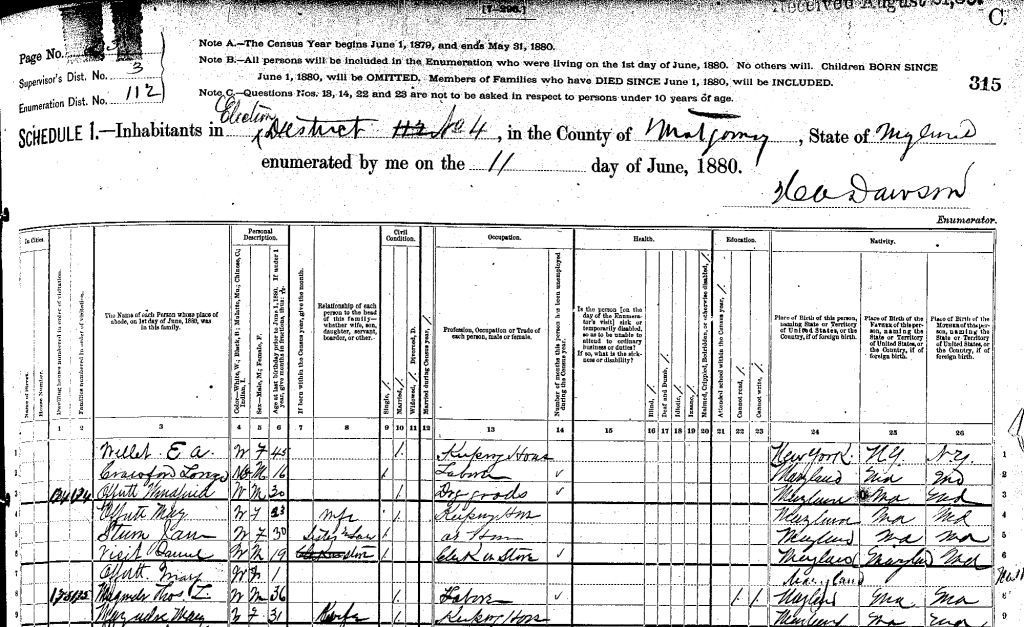 [7-296.]
Received August 31,
C.
Page No.
Supervisor's Dist. No. 3
Enumeration Dist. No. 112
Note A.—The Census Year begins June 1, 1879, and ends May 31, 1880.
Note B.—All persons will be included in the Enumeration who were living on the 1st day of June, 1880. No others will. Children BORN SINCE
June 1, 1880, will be OMITTED. Members of Families who have DIED SINCE June 1, 1880, will be INCLUDED.
Note C.—Questions Nos. 13, 14, 22 and 23 are not to be asked in respect to persons under 10 years of age.
315
Election
SCHEDULE 1.—Inhabitants in District No 4, in the County of Montgomery, State of Maryland
enumerated by me on the 11 day of June, 1880.
Dawson
Enumerator.
In Cities.
Name of Street.
House Number.
Dwelling houses numbered in order of visitation.
Families numbered in order of visitation.
The Name of each Person whose place of abode, on 1st day of June, 1880, was in this family.
Personal Description.
Color—White, W.; Black, B.; Mulatto, Mu.; Chinese, C.; Indian, I.
Sex—Male, M.; Female, F.
Age at last birthday prior to June 1, 1880. If under 1 year, give months in fractions, thus:
If born within the Census year, give the month.
Relationship of each person to the head of this family—whether wife, son, daughter, servant, boarder, or other.
Civil Condition.
Single, /
Married, /
Widowed, / Divorced, D.
Married during Census year, /
Occupation.
Profession, Occupation or Trade of each person, male or female.
Number of months this person has been unemployed during the Census year.
Health.
Is the person [on the day of the Enumerator's visit] sick or temporarily disabled, so as to be unable to attend to ordinary business or duties? If so, what is the sickness or disability?
Blind, /
Deaf and Dumb, /
Idiotic, /
Insane, /
Maimed, Crippled, Bedridden, or otherwise disabled, /
Education.
Attended school within the Census year, /
Cannot read, /
Cannot write, /
Nativity.
Place of Birth of this person, naming State or Territory of United States, or the Country, if of foreign birth.
Place of Birth of the FATHER of this person, naming the State or Territory of United States, or the Country, if of foreign birth.
Place of Birth of the MOTHER of this person, naming the State or Territory of United States, or the Country, if of foreign birth.
1 2 3 4 5 6 7 8 9 10 11 12 13 14 15 16 17 18 19 20 21 22 23 24 25 26
1 Willet E A. W F 45 / Keeping House New York N.Y. N.Y. 1
2 Crawford M 16 / Labor Maryland Md Md 2
3 124 124 Offutt W M 30 / Dry goods Maryland Md Md 3
4 Offutt May W F 23 wife / Keeping House Maryland Md Md 4
5 W F 30 Sister in Law / at Home Maryland Md Md 5
6 Daniel W M 19 / Clerk in Store Maryland Maryland Md 6
7 Offutt Mary W F 1 Maryland 7
8 125 125 Thos. L. W M 36 / Labor / / Maryland Md Md 8
9 Mary F 31 Wife / Keeping House Maryland Md Md 9